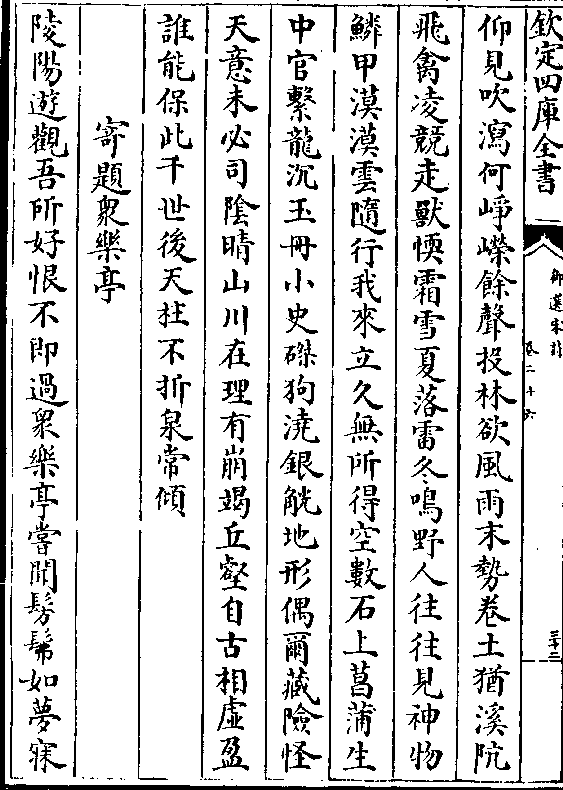 欽定四庫全書
御選宋詩
卷二十六
三十三
仰見吹瀉何崢嶸餘聲投林欲風雨末勢卷土猶溪阬
飛禽凌競走獸慄霜雪夏落雷冬鳴野人往往見神物
鱗甲漠漠雲隨行我來立久無所得空數石上菖蒲生
中官繫龍沉玉冊小史磔狗澆銀觥地形偶爾藏險怪
天意未必司陰晴山川在理有崩竭丘壑自古相虛盈
誰能保此千世後天柱不折泉常傾
寄題衆樂亭
陵陽遊觀吾所好恨不即過衆樂亭嘗聞髣髴如夢寐